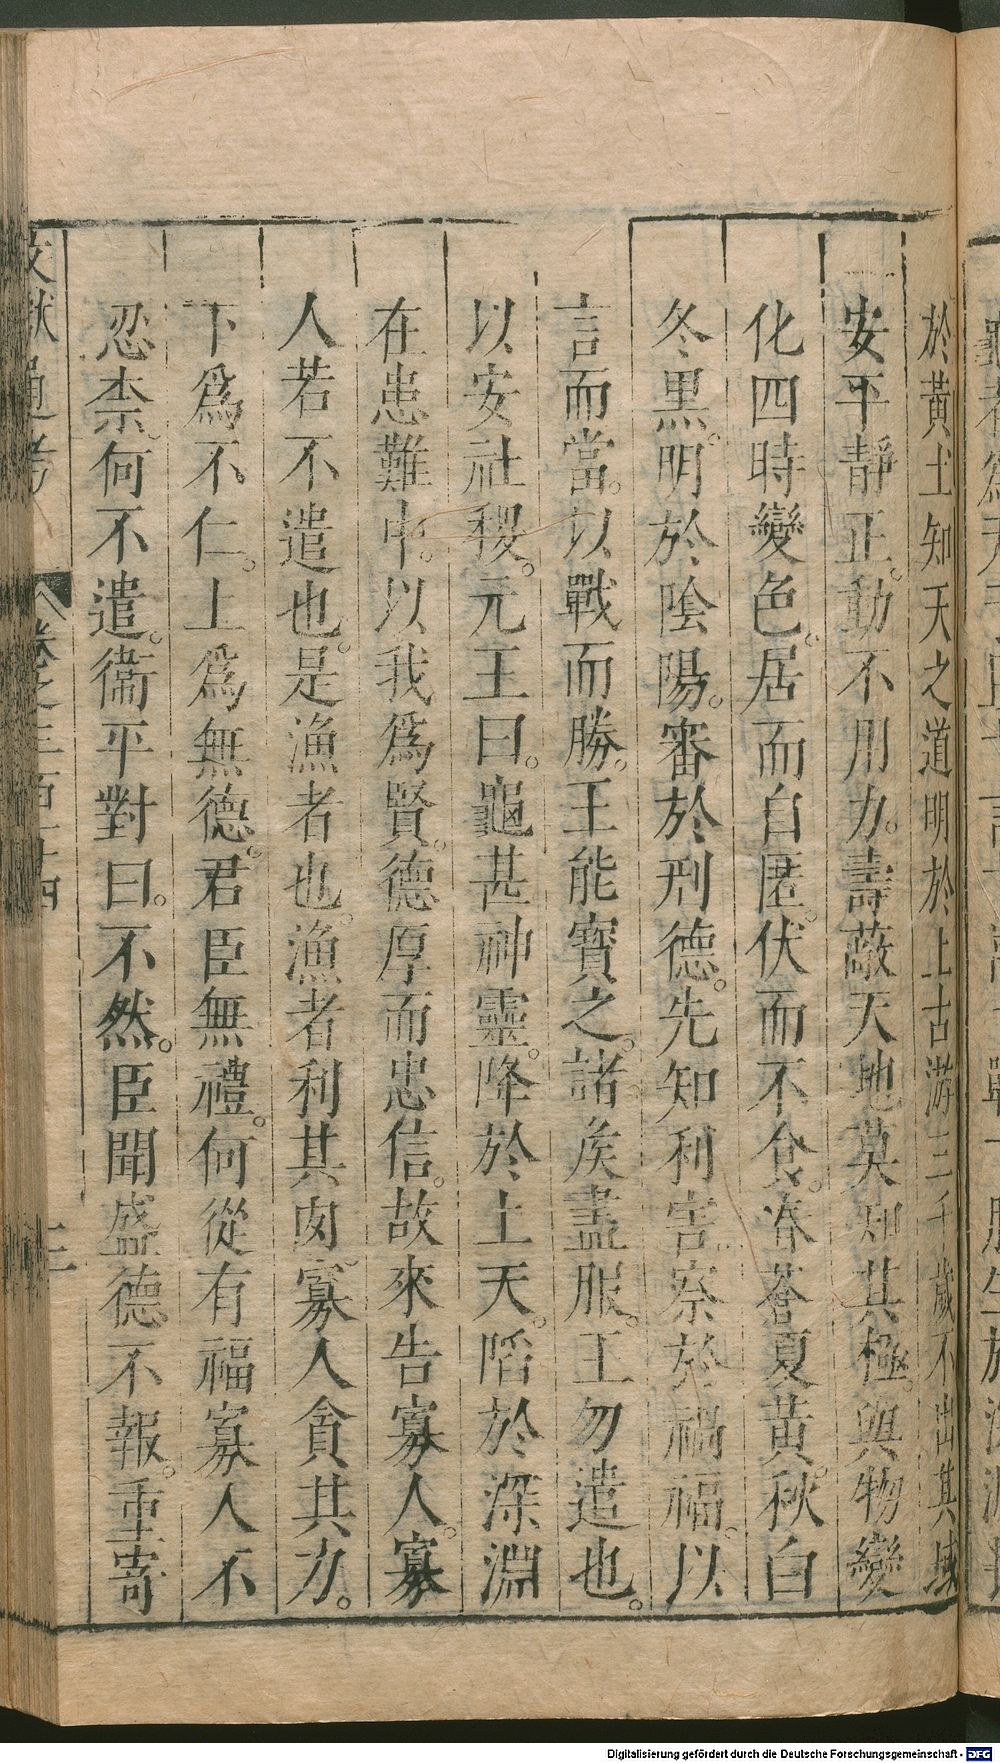 於黃土知天之道明於上古游三千歲不出其域
安平靜正。動不用力。壽蔽天地莫知其極。與物變
化四時變色。居而自匿。伏而不食。春蒼夏黃。秋白
冬黑。明於陰陽。審於刑德。先知利害。察於禍福。以
言而當。以戰而勝。王能寶之。諸矦盡服。王勿遣也。
以安社稷。元王曰。龜甚神靈。降於上天。陷於深淵
在患難中。以我爲賢。德厚而忠信。故來告寡人。寡
人若不遣也。是漁者也。漁者利其肉。寡人貪其力。
下爲不仁。上爲無德。君臣無禮。何從有福寡人不
忍柰何不遣。衞平對曰。不然。臣聞盛德不報。重寄
文獻通考 卷之三百二十四 二
Digitalisierung gefördert durch die Deutsche Forschungsgemeinschaft - DFG